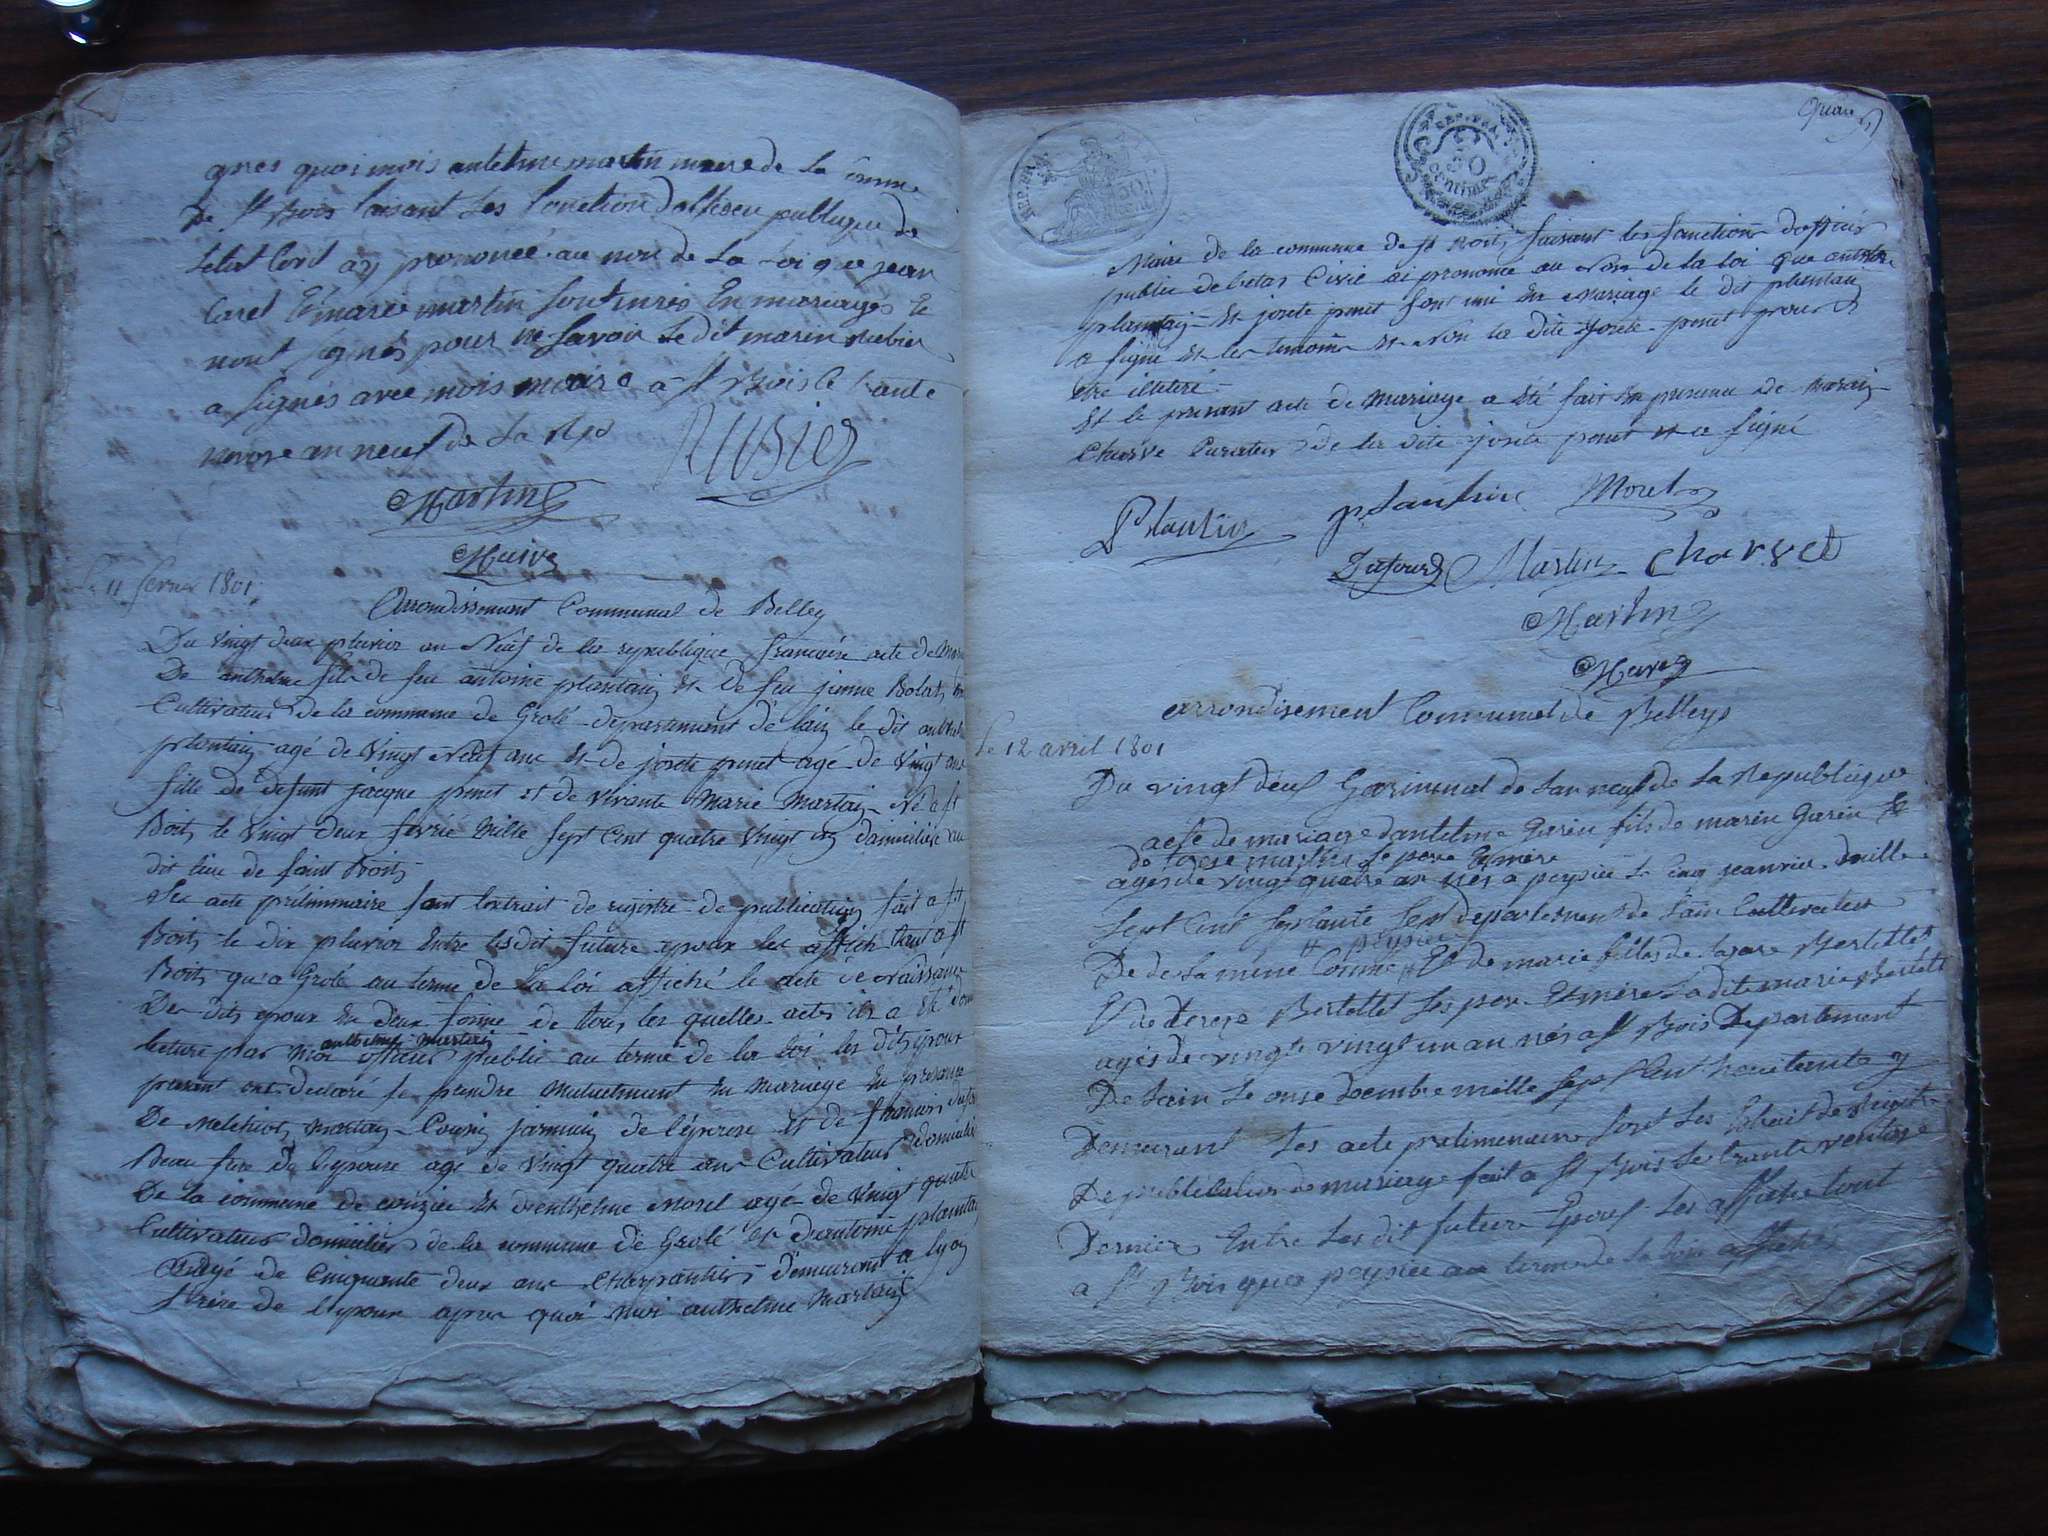 apres quoi mois antelme martin maire de La Comne
De St Bois faisant Les fonction dofficeu publique de
Letat Civil ay prononcé au non de La Loi que jean
Caret Et marie martin sont unies En mariages Et
nont signés pour ne Savoir Le dit marin rubier
a signés avec mois maire a St Bois le trante
nivose an neuf de La Rep
RUBIER
Martin
Maire
Le 11 février 1801
Arrondissement Communal de Belley
Du vingt deux pluviose an Neuf de la republique francaise acte de mari
De anthelme fils de feu antoine plantaiz et de feu jenne Bolat
Cultivateur de la commune de Grolé département de lain le dit anthel
plantain agé de Vingt Neuf ans Et de josete ponet agé de Vingt ans
fille de défunt jacque ponet et de vivante Marie Martin Né a st
Bois le vingt deux fevrié Mille sept Cent quatre Vingt un domiciliée au
dit lieu de saint Bois
Les acte préliminaire sont lextrait de registre de publication fait a st
Bois le dix pluviose Entre lesdit future epoux les affiche tant a st
Bois qu'a Grolé au terme de la loi affiché le acte de naissance
Des dits epoux En deux forme de tous les quelles actes il a été donné
anthelme martin
lecture par moi officier public au terme de la loi les dits epoux
present ont declaré se prendre Mutuelment En Mariage En presence
De Melchiot Martin Cousin jarmain de l'épouse et de francois dufour
Beau frere de lepouse age de Vingt quatre ans Cultivateur domicilié
De la commune de conzieu Et d'enthelme Morel agé de vingt quatre
Cultivateur domicilier de la commune de Grolé et d'antoine plantay
agé de Cinquante deux ans Charpantier demeurant a lyon
frère de l'epoux apres quoi Moi anthelme Martain
REP. FRA.
50
centimes
Maire de la commune de St Bois faisant les fonction dofficier
public de letat Civil ai prononcé au Nom de la loi que anthelme
plantain Et josete ponet sont uni En Mariage le dit plantain
a signé Et les temoins Et non la dite josete ponet pour
etre illitéré
Et le present acte de Mariage a été fait En presence de Marin
Charve Curateur de la dite josete ponet et a signé
Plantin plantin Morel
Dufour Martin Charvet
Martin
Maire
arrondisement Communal de Belleys
Le 12 avril 1801
Du vingt deus Geriminal de Lan neuf de La Republique
acte de mariage dantelme Garin fils de marin Garin Et
de martin Le pere Et mere
agés de vingt quatre an nés a peysieu Le cinq jeanvier mille
Sept Cent Septante Sept departement de Lain Cultivateur
# peysieu
De de La meme Comne # Et de marie filles de Lasare Bertellet
Et de terese Bertellet Ses pere Et mere La dite marie Bertellet
agés de vingt vingt un an nés a St Bois Departement
De Lain Le onse Desembre mille Sept Cent Septante y
Demeurant Les acte preliminaire Sont Les Extrait de registre
De publication de mariage fait a St Bois Le trante ventose
Dernier Entre Les dit future Epous Les affiche tant
a St Bois qua peysieu au terme de La Loix affichés